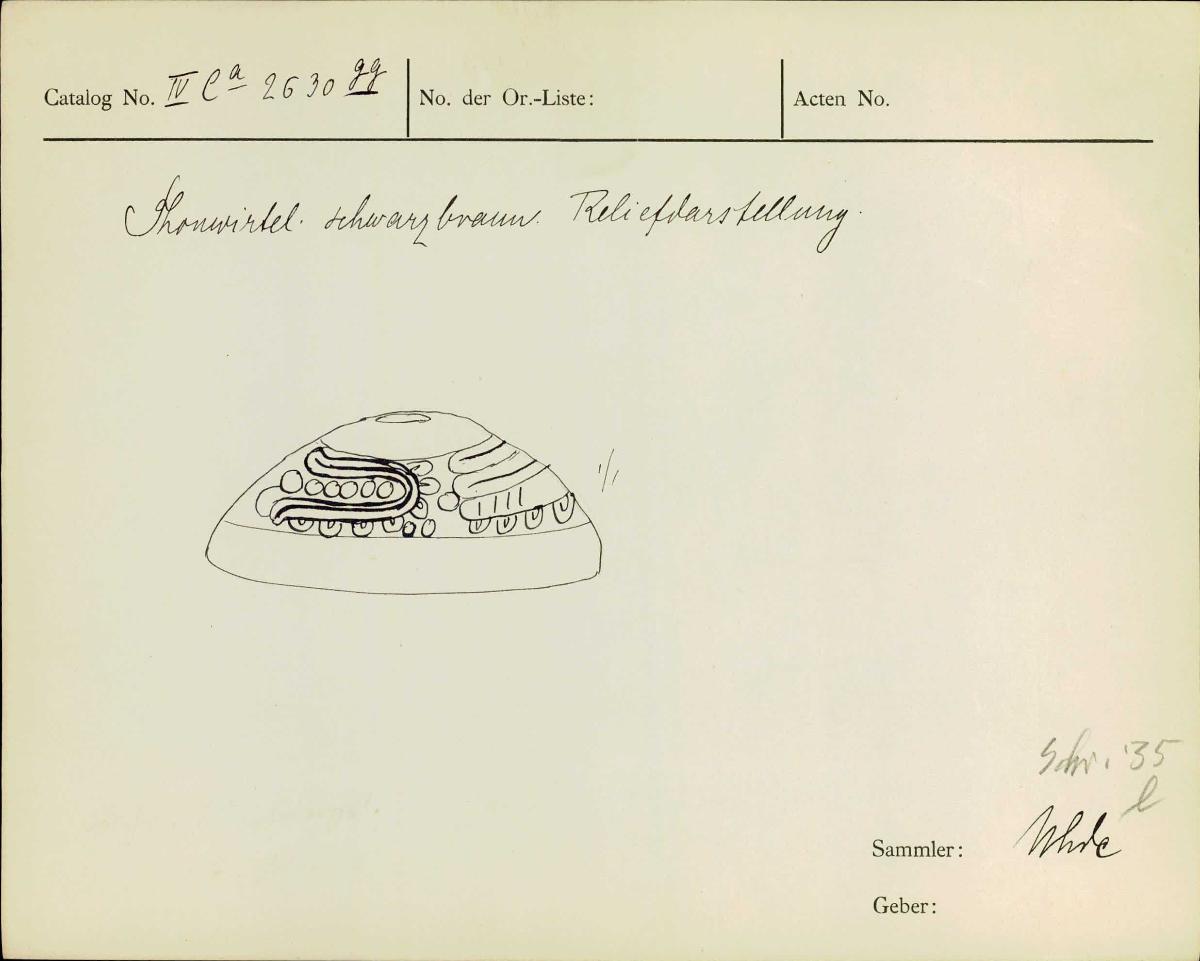 Catalog No. IV Ca 2630 gg
No. der Or.-Liste:
Acten No.
Thonwirtel. schwarzbraun. Reliefdarstellung.
1/1
Schr. '35
l
Sammler: Uhde
Geber: